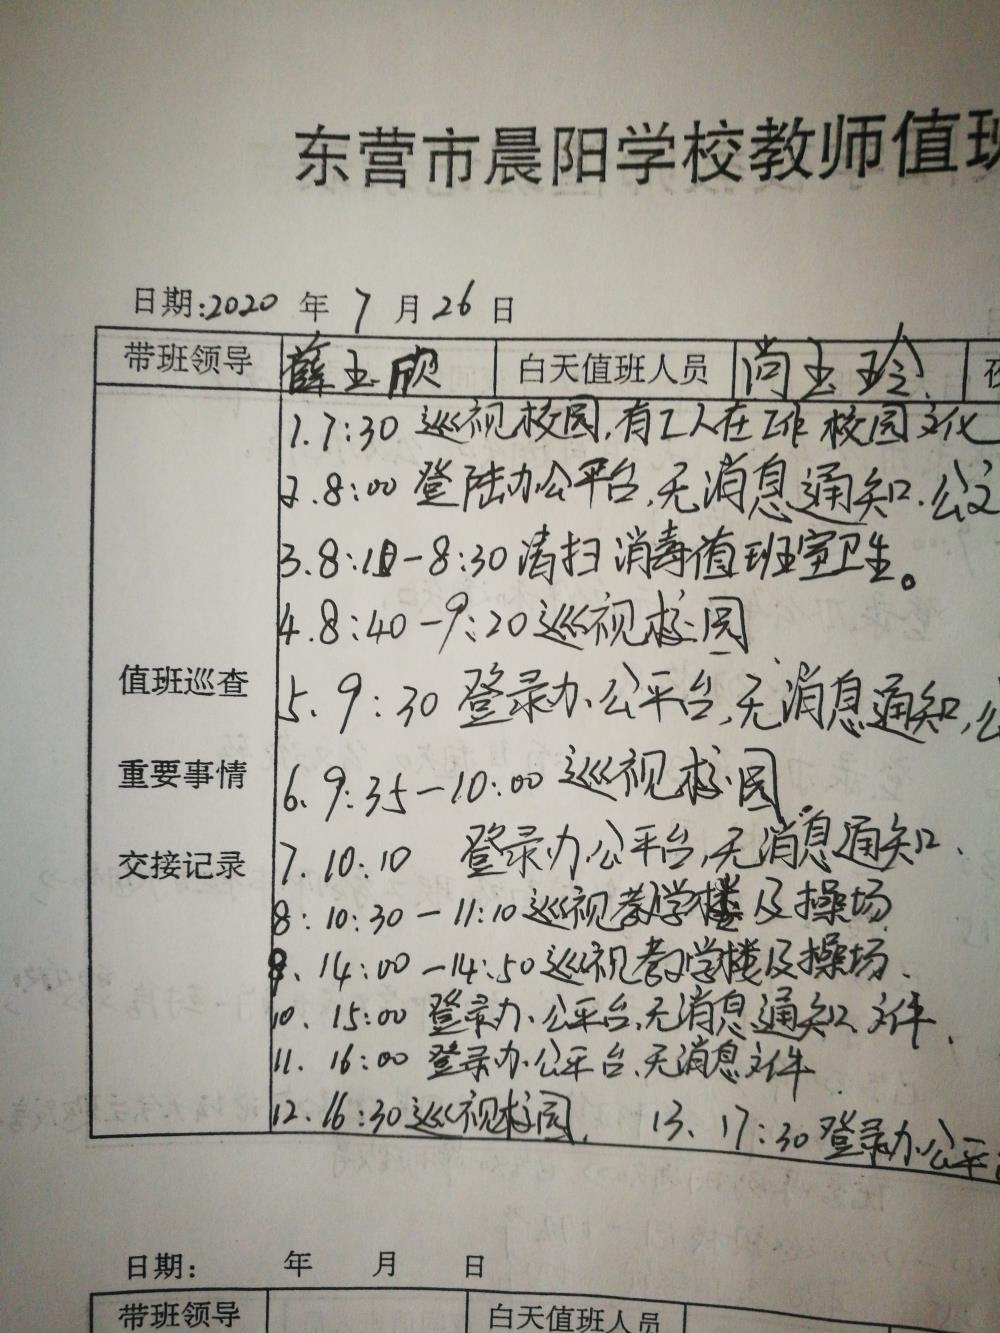 东营市晨阳学校教师值班
日期:2020 年 7 月 26 日
带班领导 薛玉欣 白天值班人员 尚玉玲
1.7:30 巡视校园,有工人在工作 校园文化
2.8:00 登陆办公平台,无消息通知.公文
3.8:10-8:30 清扫消毒值班室卫生。
4.8:40-9:20 巡视校园
值班巡查
5.9:30 登录办公平台,无消息通知,公
重要事情
6.9:35-10:00 巡视校园.
交接记录
7.10:10 登录办公平台,无消息通知.
8:10:30-11:10 巡视教学楼及操场
9.14:00-14:50 巡视教学楼及操场.
10.15:00 登录办公平台,无消息通知文件.
11.16:00 登录办公平台,无消息文件
12.16:30 巡视校园. 13、17:30 登录办公平
日期: 年 月 日
带班领导 白天值班人员